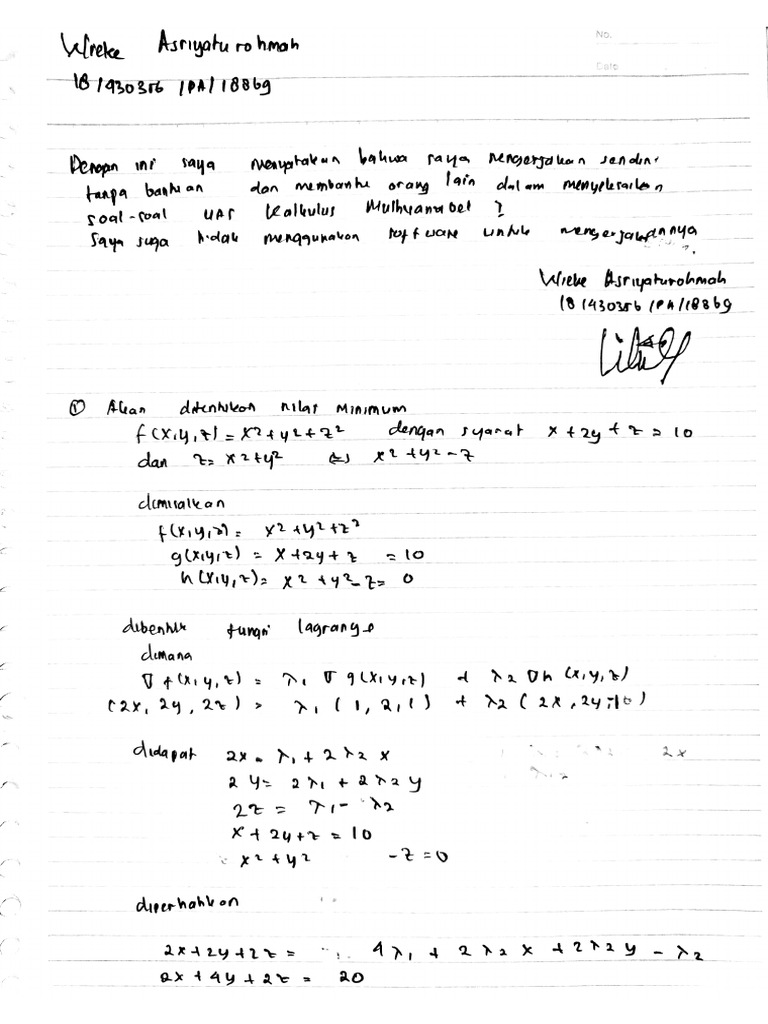 Wieke Asriyaturohmah
No.
18/430356/PA/18869
Date
Dengan ini saya menyatakan bahwa saya mengerjakan sendiri
tanpa bantuan dan membantu orang lain dalam menyelesaikan
soal-soal UAS Kalkulus Multivariabel ?
Saya juga tidak menggunakan software untuk mengerjakannya
Wieke Asriyaturohmah
18/430356/PA/18869
① Akan ditentukan nilai minimum
f(x,y,z) = x² + y² + z² dengan syarat x + 2y + z = 10
dan z = x² + y² ⇔ x² + y² - z
dimisalkan
f(x,y,z) = x² + y² + z²
g(x,y,z) = x + 2y + z = 10
h(x,y,z) = x² + y² - z = 0
dibentuk fungsi lagrange
dimana
∇f(x,y,z) = λ₁ ∇g(x,y,z) + λ₂ ∇h(x,y,z)
(2x, 2y, 2z) = λ₁ (1, 2, 1) + λ₂ (2x, 2y, )
didapat 2x = λ₁ + 2λ₂ x
2y = 2λ₁ + 2λ₂ y
2z = λ₁ - λ₂
x + 2y + z = 10
x² + y² - z = 0
diperhatikan
2x + 2y + 2z = 4λ₁ + 2λ₂x + 2λ₂y - λ₂
2x + 4y + 2z = 20